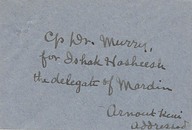 c/o Dr. Murray,
for Ishak Hasheesh
the delegate of Mardin
Arnout Keui
Addressed